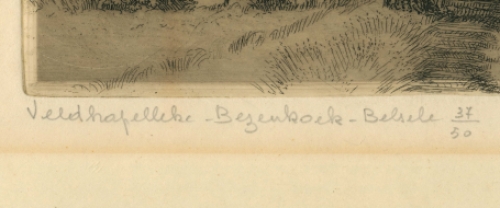 Veldkapelleke - Bezenkoek - Belsele 37/50